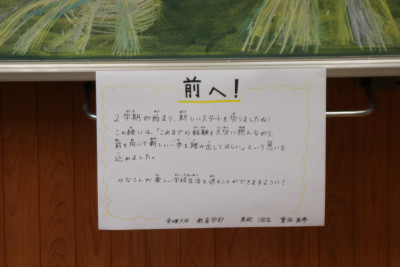 前へ!
2学期が始まり、新しいスタートを切りましたね!
この絵には、「これまでの経験を大切に抱えながら、
前を向いて新しい一歩を踏み出してほしい」という思いを
込めました。
みなさんが楽しい学校生活を送ることができますように!
大学 教育学部 1回生